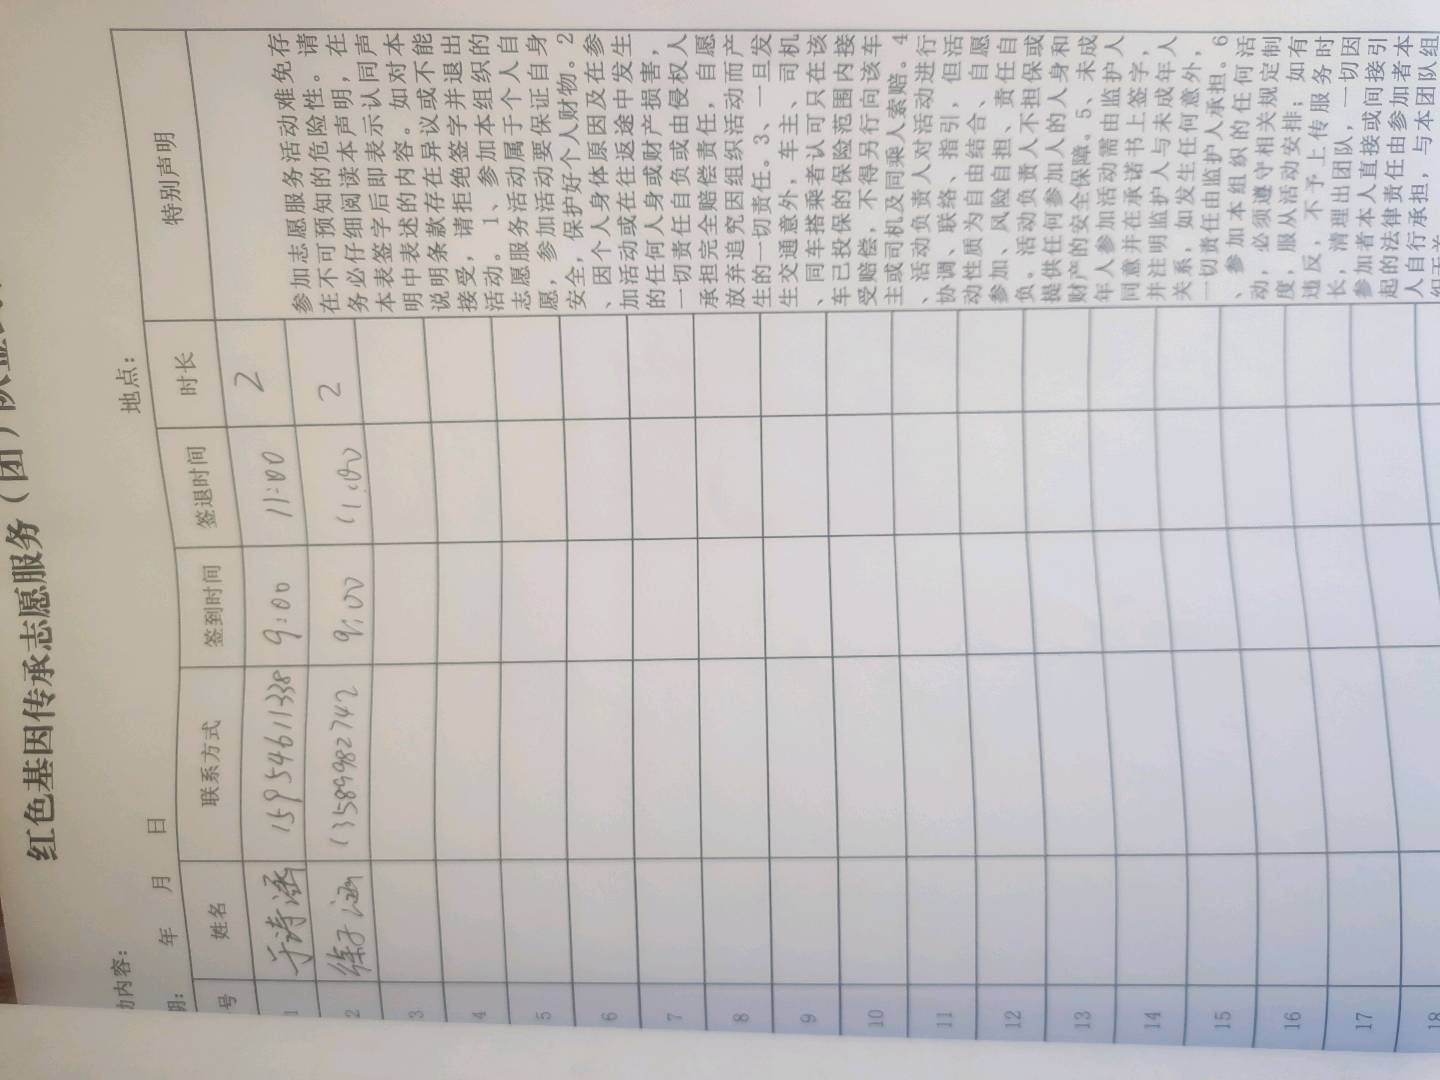 红色基因传承志愿服务（团）队
内容：
地点：
年 月 日
号 姓名 联系方式 签到时间 签退时间 时长 特别声明
1 于诗涵 15954611338 9:00 11:00 2
2 徐子涵 13589982742 9:00 11:00 2
3
4
5
6
7
8
9
10
11
12
13
14
15
16
17
18
参加志愿服务活动难免存
在不可预知的危险性。请
务必仔细阅读本声明，在
本表签字后即表示认同声
明中表述的内容。如对本
说明条款存在异议或不能
接受，请拒绝签字并退出
活动。1、参加本组织的
志愿服务活动属于个人自
愿，参加活动要保证自身
安全，保护好个人财物。2
、因个人身体原因及在参
加活动或在往返途中发生
的任何人身或财产损害，
一切责任自负或由侵权人
承担完全赔偿责任，自愿
放弃追究因组织活动而产
生的一切责任。3、一旦发
生交通意外，车主、司机
、同车搭乘者认可只在该
车已投保的保险范围内接
受赔偿，不得另行向该车
主或司机及同乘人索赔。4
、活动负责人对活动进行
协调、联络、指引，但活
动性质为自由结合、自愿
参加、风险自担、责任自
负。活动负责人不担保或
提供任何参加人的人身和
财产的安全保障。5、未成
年人参加活动需由监护人
同意并在承诺书上签字，
并注明监护人与未成年人
关系，如发生任何意外，
一切责任由监护人承担。6
、参加本组织的任何活
动，必须遵守相关规定制
度，服从活动安排；如有
违反，不予上传服务时
长，清理出团队，一切因
参加者本人直接或间接引
起的法律责任由参加者本
人自行承担，与本团队组